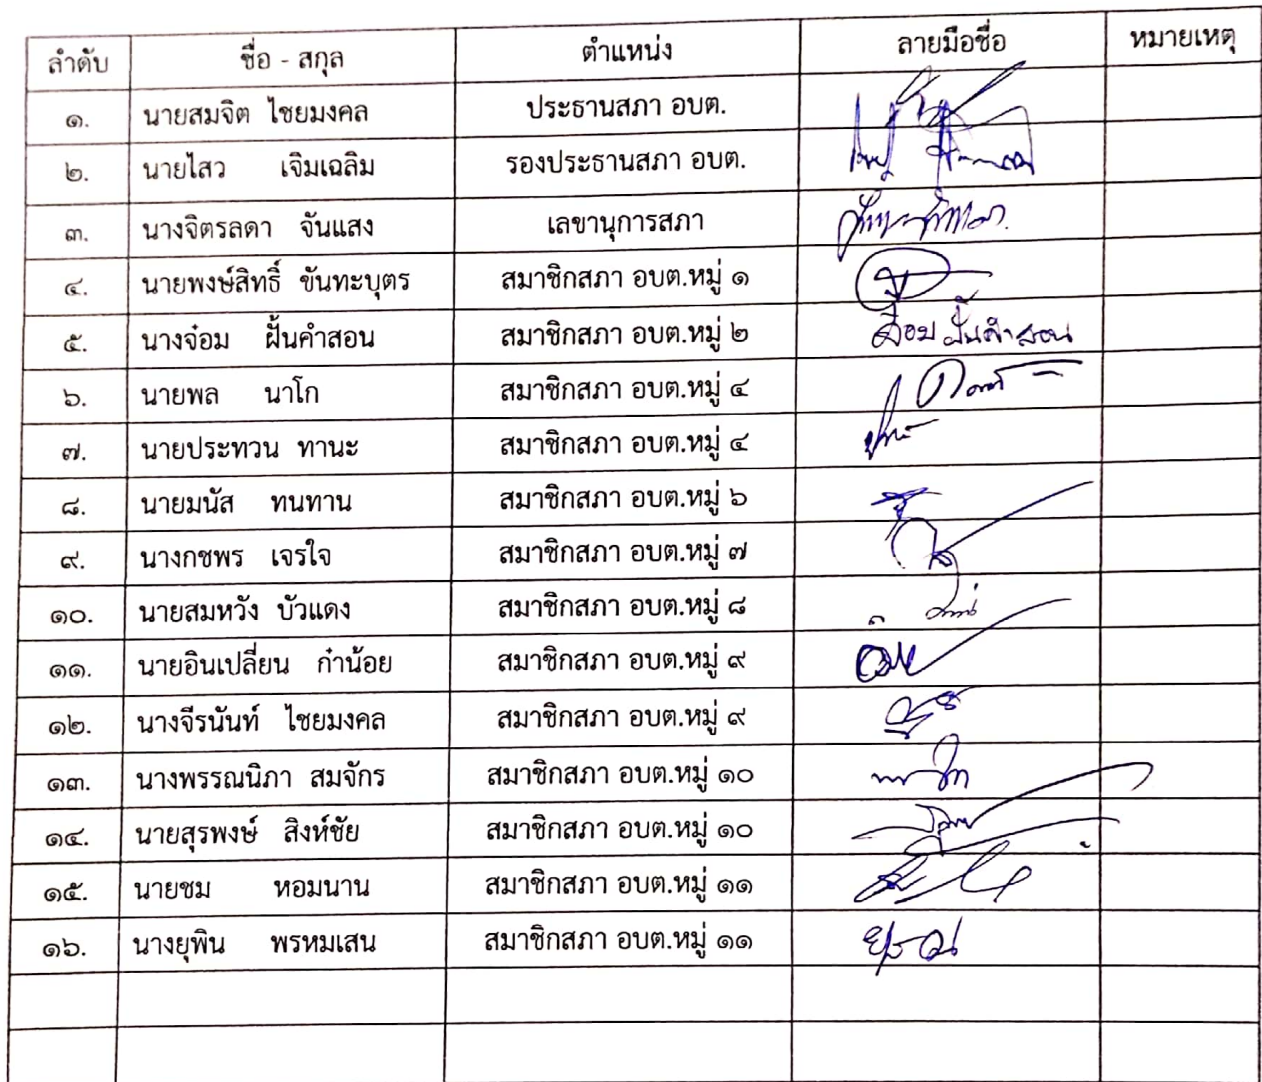 ลำดับ ชื่อ - สกุล ตำแหน่ง ลายมือชื่อ หมายเหตุ
๑. นายสมจิต ไชยมงคล ประธานสภา อบต.
๒. นายไสว เจิมเฉลิม รองประธานสภา อบต.
๓. นางจิตรลดา จันแสง เลขานุการสภา
๔. นายพงษ์สิทธิ์ ขันทะบุตร สมาชิกสภา อบต.หมู่ ๑
๕. นางจ๋อม ฝั้นคำสอน สมาชิกสภา อบต.หมู่ ๒ ฝั้นคำสอน
๖. นายพล นาโก สมาชิกสภา อบต.หมู่ ๔
๗. นายประทวน ทานะ สมาชิกสภา อบต.หมู่ ๔
๘. นายมนัส ทนทาน สมาชิกสภา อบต.หมู่ ๖
๙. นางกชพร เจรใจ สมาชิกสภา อบต.หมู่ ๗
๑๐. นายสมหวัง บัวแดง สมาชิกสภา อบต.หมู่ ๘
๑๑. นายอินเปลี่ยน ก๋าน้อย สมาชิกสภา อบต.หมู่ ๙
๑๒. นางจีรนันท์ ไชยมงคล สมาชิกสภา อบต.หมู่ ๙
๑๓. นางพรรณนิภา สมจักร สมาชิกสภา อบต.หมู่ ๑๐
๑๔. นายสุรพงษ์ สิงห์ชัย สมาชิกสภา อบต.หมู่ ๑๐
๑๕. นายชม หอมนาน สมาชิกสภา อบต.หมู่ ๑๑
๑๖. นางยุพิน พรหมเสน สมาชิกสภา อบต.หมู่ ๑๑